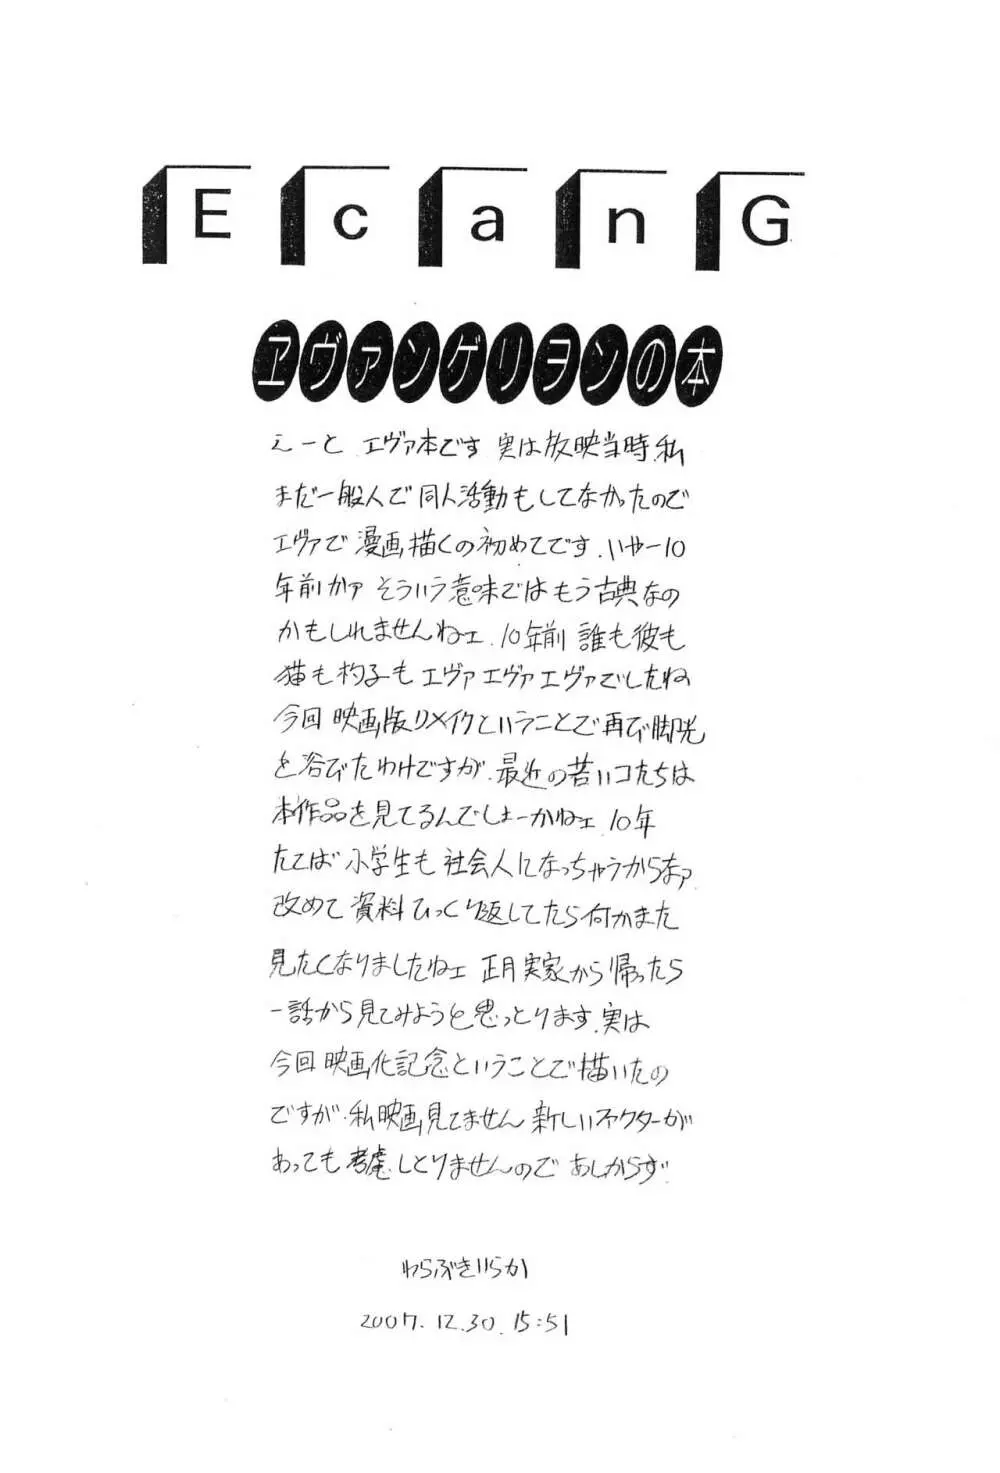 EcanG
ヱヴァンゲリヲンの本
えーと エヴァ本です 実は放映当時、私
まだ一般人で同人活動もしてなかったので
エヴァで漫画描くの初めてです、いやー10
年前かァ そういう意味ではもう古典なの
かもしれませんねェ、10年前 誰も彼も
猫も杓子もエヴァエヴァエヴァでしたね
今回映画版リメイクということで再び脚光
を浴びたわけですが、最近の若いコたちは
本作品を見てるんでしょーかねェ 10年
たてば小学生も社会人になっちゃうからなァ
改めて資料ひっくり返してたら何かまた
見たくなりましたねェ 正月実家から帰ったら
一話から見てみようと思っとります、実は
今回映画化記念ということで描いたの
ですが、私映画見てません 新しいファクターが
あっても考慮しとりませんので あしからず
わらぶきいらか
2007.12.30.15:51